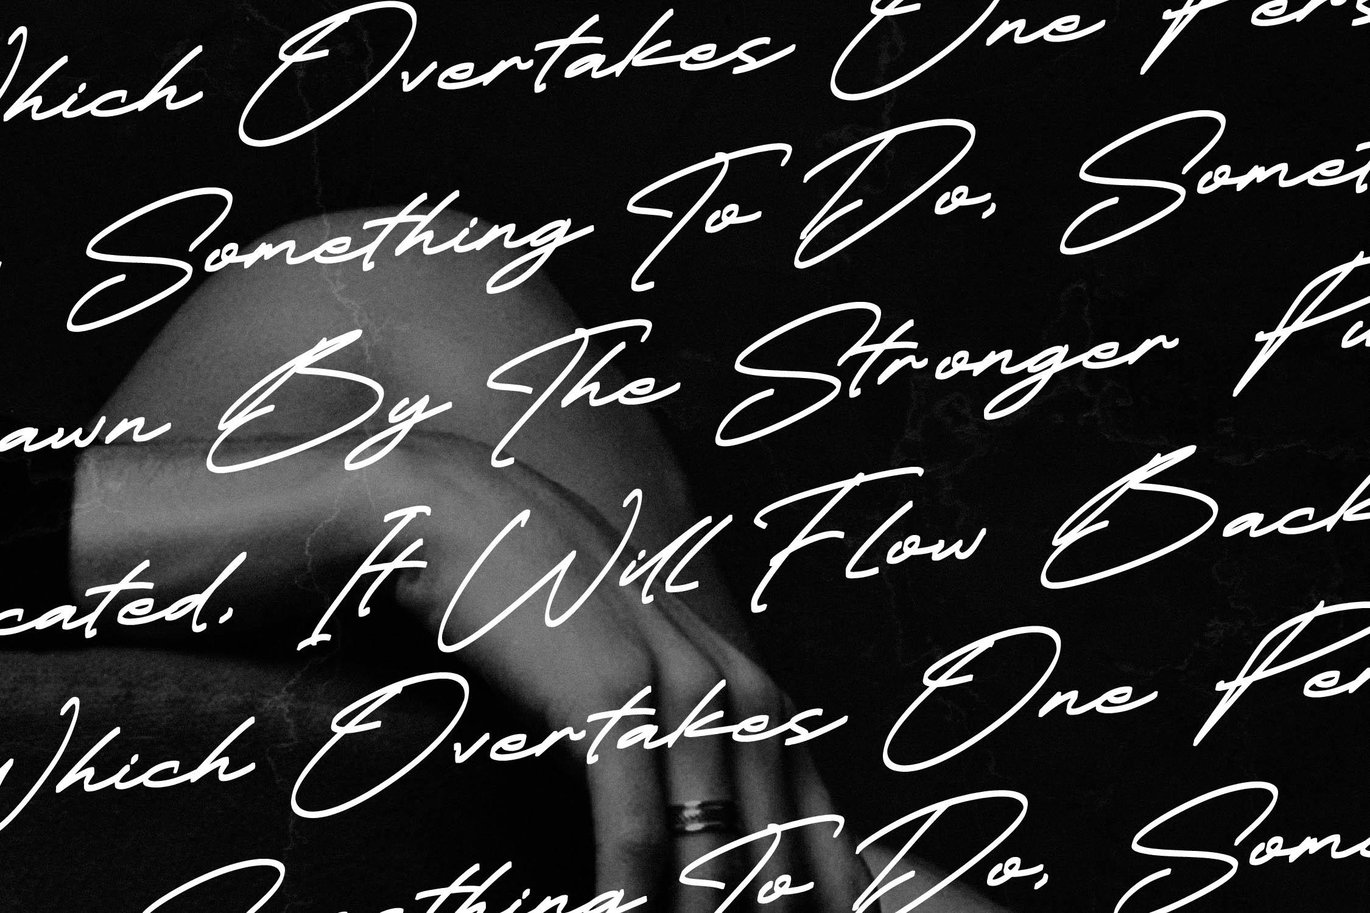 Which Overtakes One Pers
Something To Do, Somet
awn By The Stronger Pu
cated, It Will Flow Back
Which Overtakes One Per
Something To Do, Some